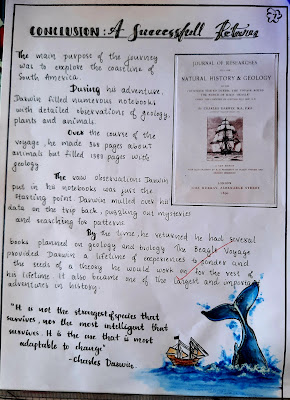 CONCLUSION: A Successfull Returning
The main purpose of the journey
was to explore the coastline of
South America.
During his adventure,
Darwin filled numerous notebooks
with detailed observations of geology,
plants and animals.
Over the course of the
voyage, he made 368 pages about
animals but filled 1383 pages with
geology.
The raw observations Darwin
put in his notebooks was just the
starting point. Darwin mulled over his
data on the trip back, puzzling out mysteries
and searching for patterns.
By the time, he returned he had several
books planned on geology and biology. The Beagle Voyage
provided Darwin a lifetime of experiences to ponder and
the seeds of a theory he would work on for the rest of
his lifetime. It also became one of the largest and important
adventures in history.
"It is not the strongest of species that
survives, nor the most intelligent that
survives. It is the one that is most
adaptable to change"
- Charles Darwin.
JOURNAL OF RESEARCHES
NATURAL HISTORY & GEOLOGY